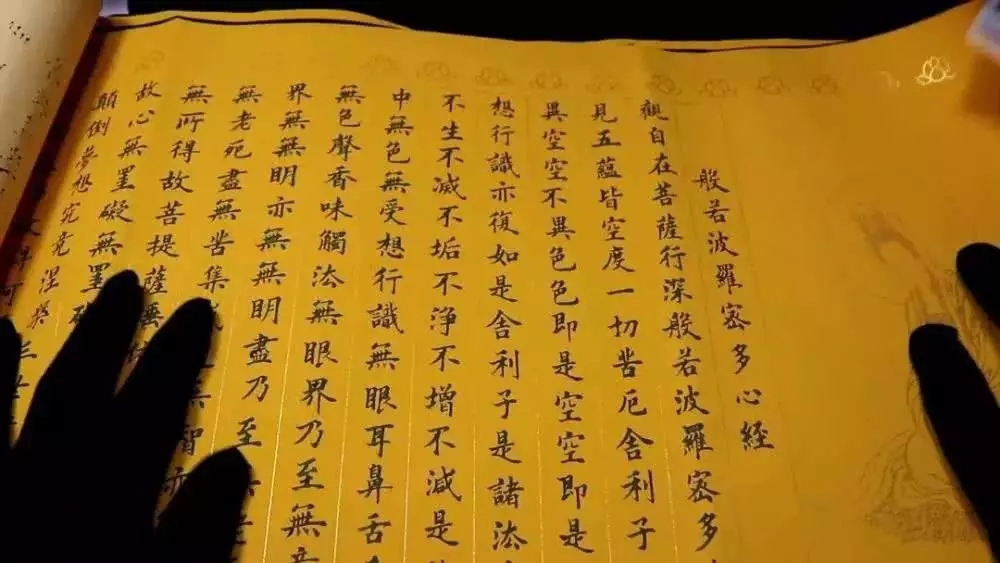 般若波羅密多心經
觀自在菩薩行深般若波羅密多
見五蘊皆空度一切苦厄舍利子
異空空不異色色即是空空即是
想行識亦復如是舍利子是諸法
不生不滅不垢不淨不增不減是
中無色無受想行識無眼耳鼻舌
無色聲香味觸法無眼界乃至無
界無無明亦無無明盡乃至
無老死盡無苦集無智亦
無所得故菩提薩埵
故心無罣礙無罣
顛倒夢想究竟涅槃
三世